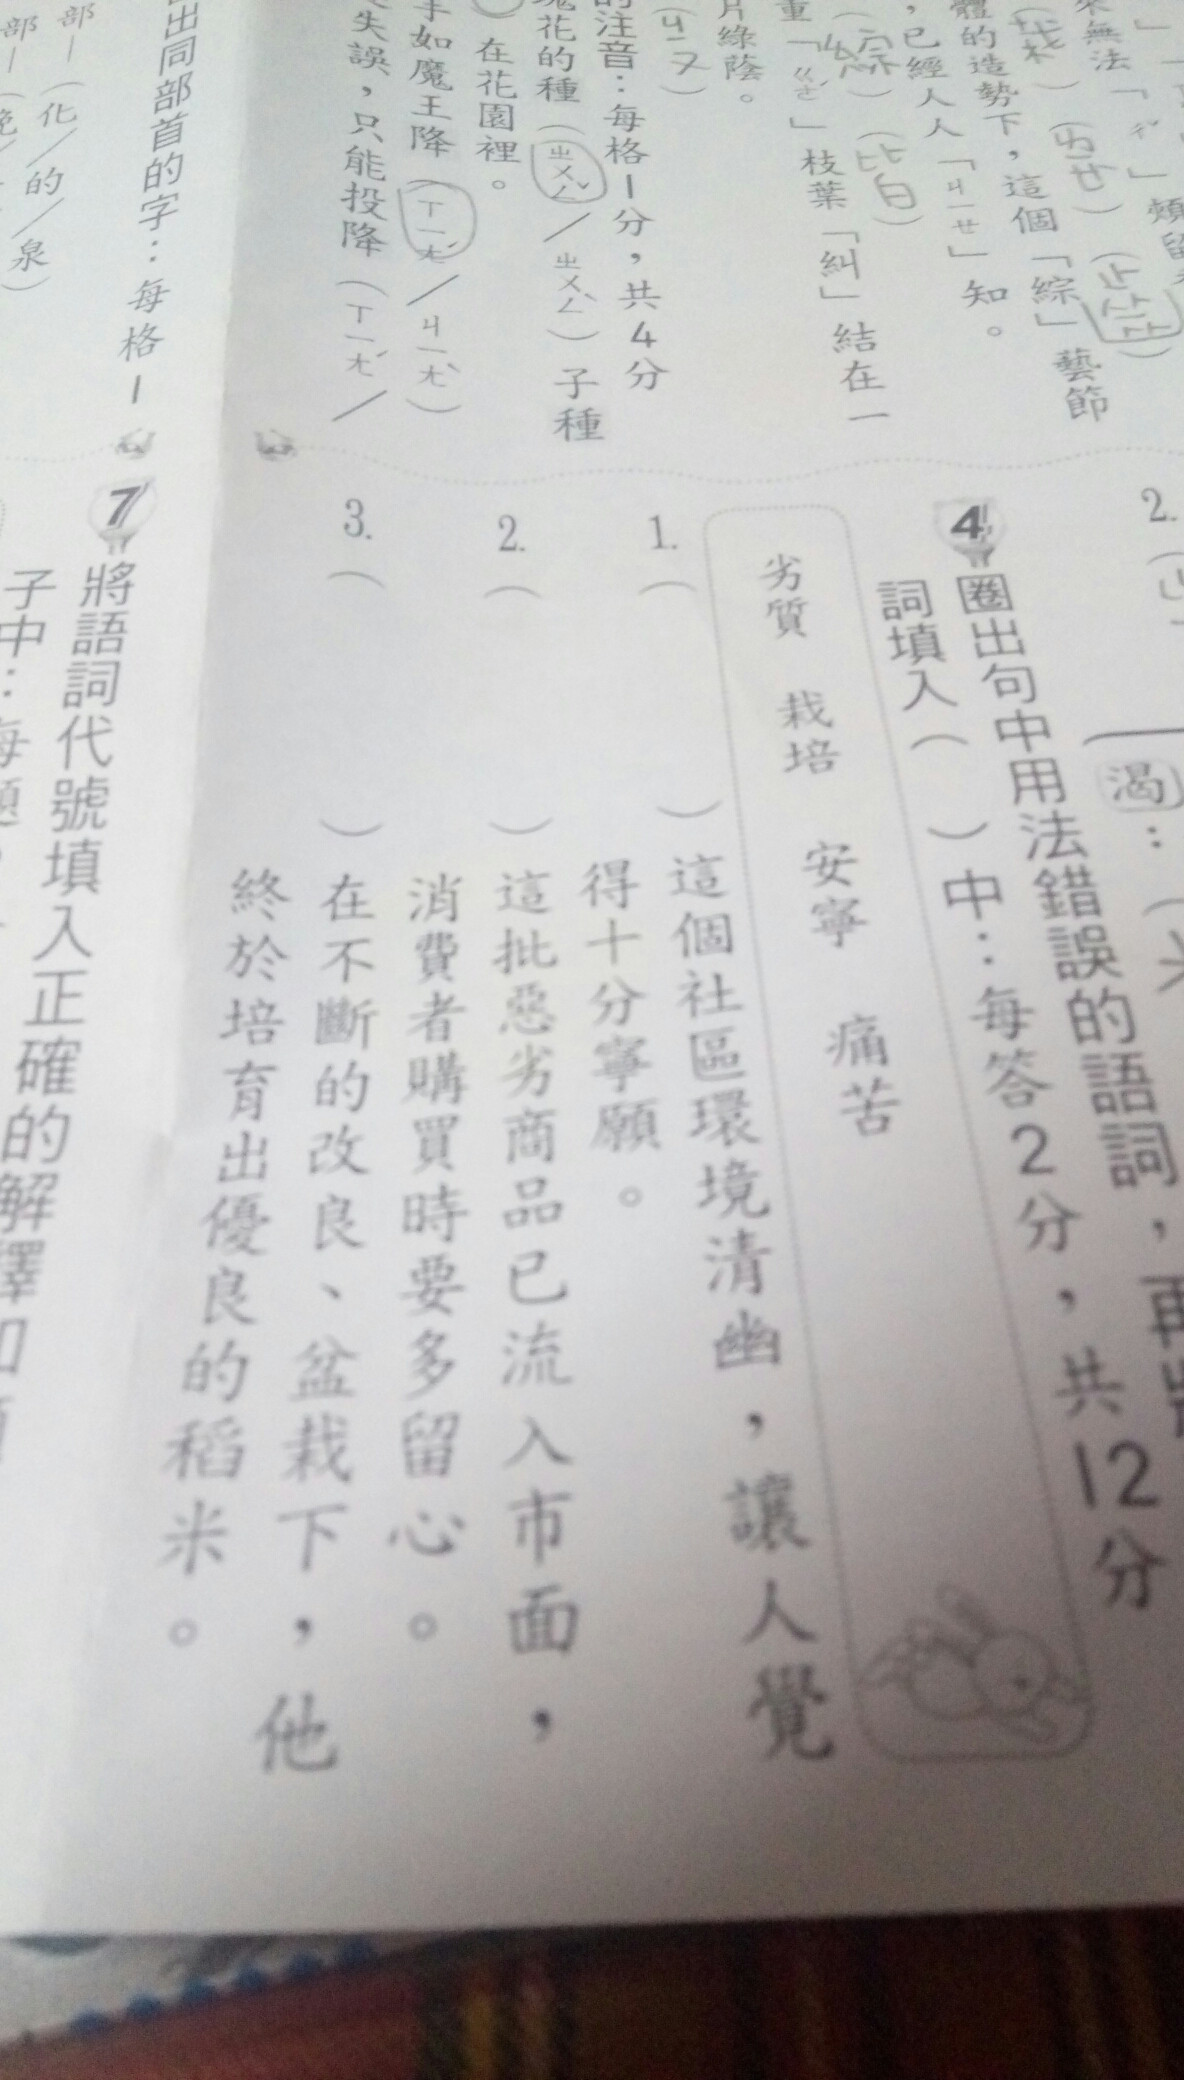 2.
渴：
4 圈出句中用法錯誤的語詞，再將
詞填入（　）中：每答2分，共12分
劣質　栽培　安寧　痛苦
1.（　）這個社區環境清幽，讓人覺
得十分寧願。
2.（　）這批惡劣商品已流入市面，
消費者購買時要多留心。
3.（　）在不斷的改良、盆栽下，他
終於培育出優良的稻米。
來無法「ㄔˊ
體的造勢下，這個「綜」藝節
，已經人人「ㄐㄧㄝ」知。
（綜）（皆）
重「ㄍㄜˊ」枝葉「糾」結在一
片綠蔭。
（ㄐㄧㄡ）
的注音：每格1分，共4分
瑰花的種（ㄓㄨㄥˇ／ㄓㄨㄥˋ）子種
）在花園裡。
手如魔王降（ㄒㄧㄤˊ／ㄐㄧㄤˋ）
失誤，只能投降（ㄒㄧㄤˊ／
出同部首的字：每格1
部－（化／的／泉）
部－（
7 將語詞代號填入正確的解釋和
子中：每題